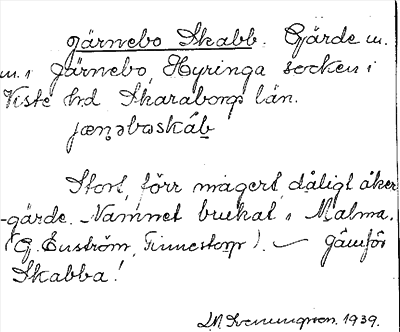 Järnebo Skabb. Gärde m.
m. i Järnebo, Hyringa socken i
Viste hd Skaraborgs län.
jæṇəbəskáb
Stort, förr magert, dåligt åker-
gärde. Namnet brukat i Malma.
(G. Enström, Finnestorp). — Jämför
Skabba!
1939.